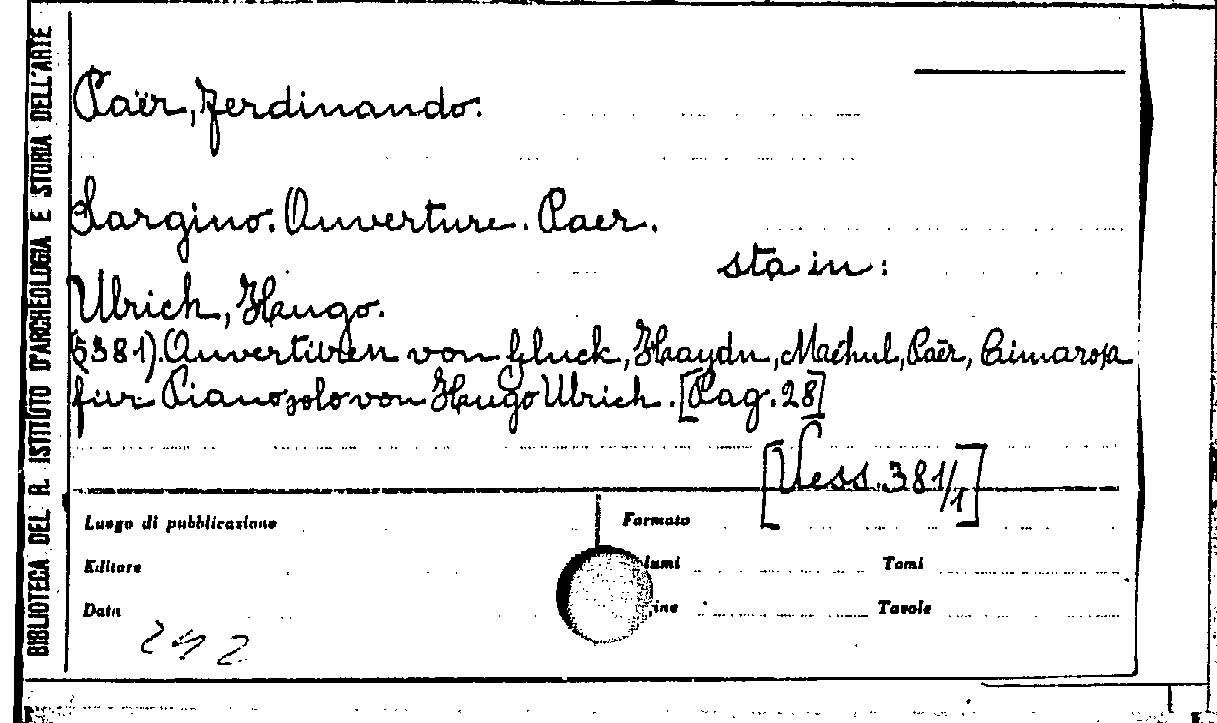 BIBLIOTECA DEL R. ISTITUTO D'ARCHEOLOGIA E STORIA DELL'ARTE
Paër, Ferdinando.
Sargino. Ouverture. Paer.
sta in:
Ulrich, Hugo.
(5381). Ouvertüren von Gluck, Haydn, Maéhul, Paër, Cimarosa
für Pianosolo von Hugo Ulrich. [Pag. 28]
[Vess. 381/1]
Luogo di pubblicazione
Formato
Editore
lumi
Tomi
Data
ine
Tavole
242